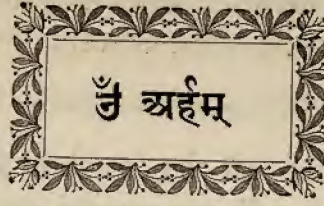 ॐ अर्हम्